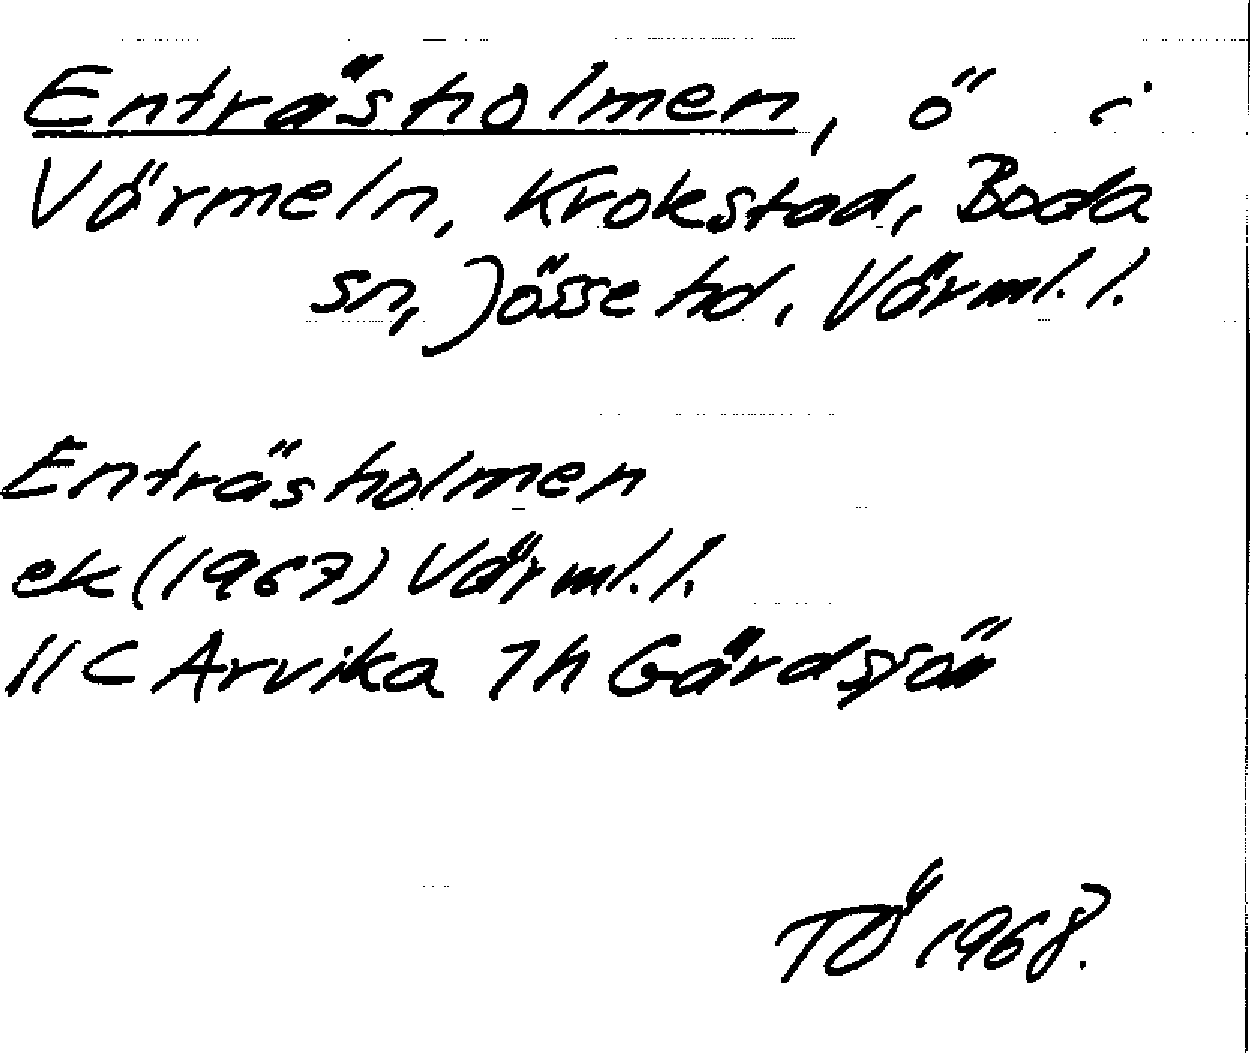 Enträsholmen, ö i
Värmeln, Krokstad, Boda
sn, Jösse hd, Värml. l.
Enträsholmen
ek (1967) Värml. l.
11C Arvika 7h Gärdsjön
TÖ 1968.